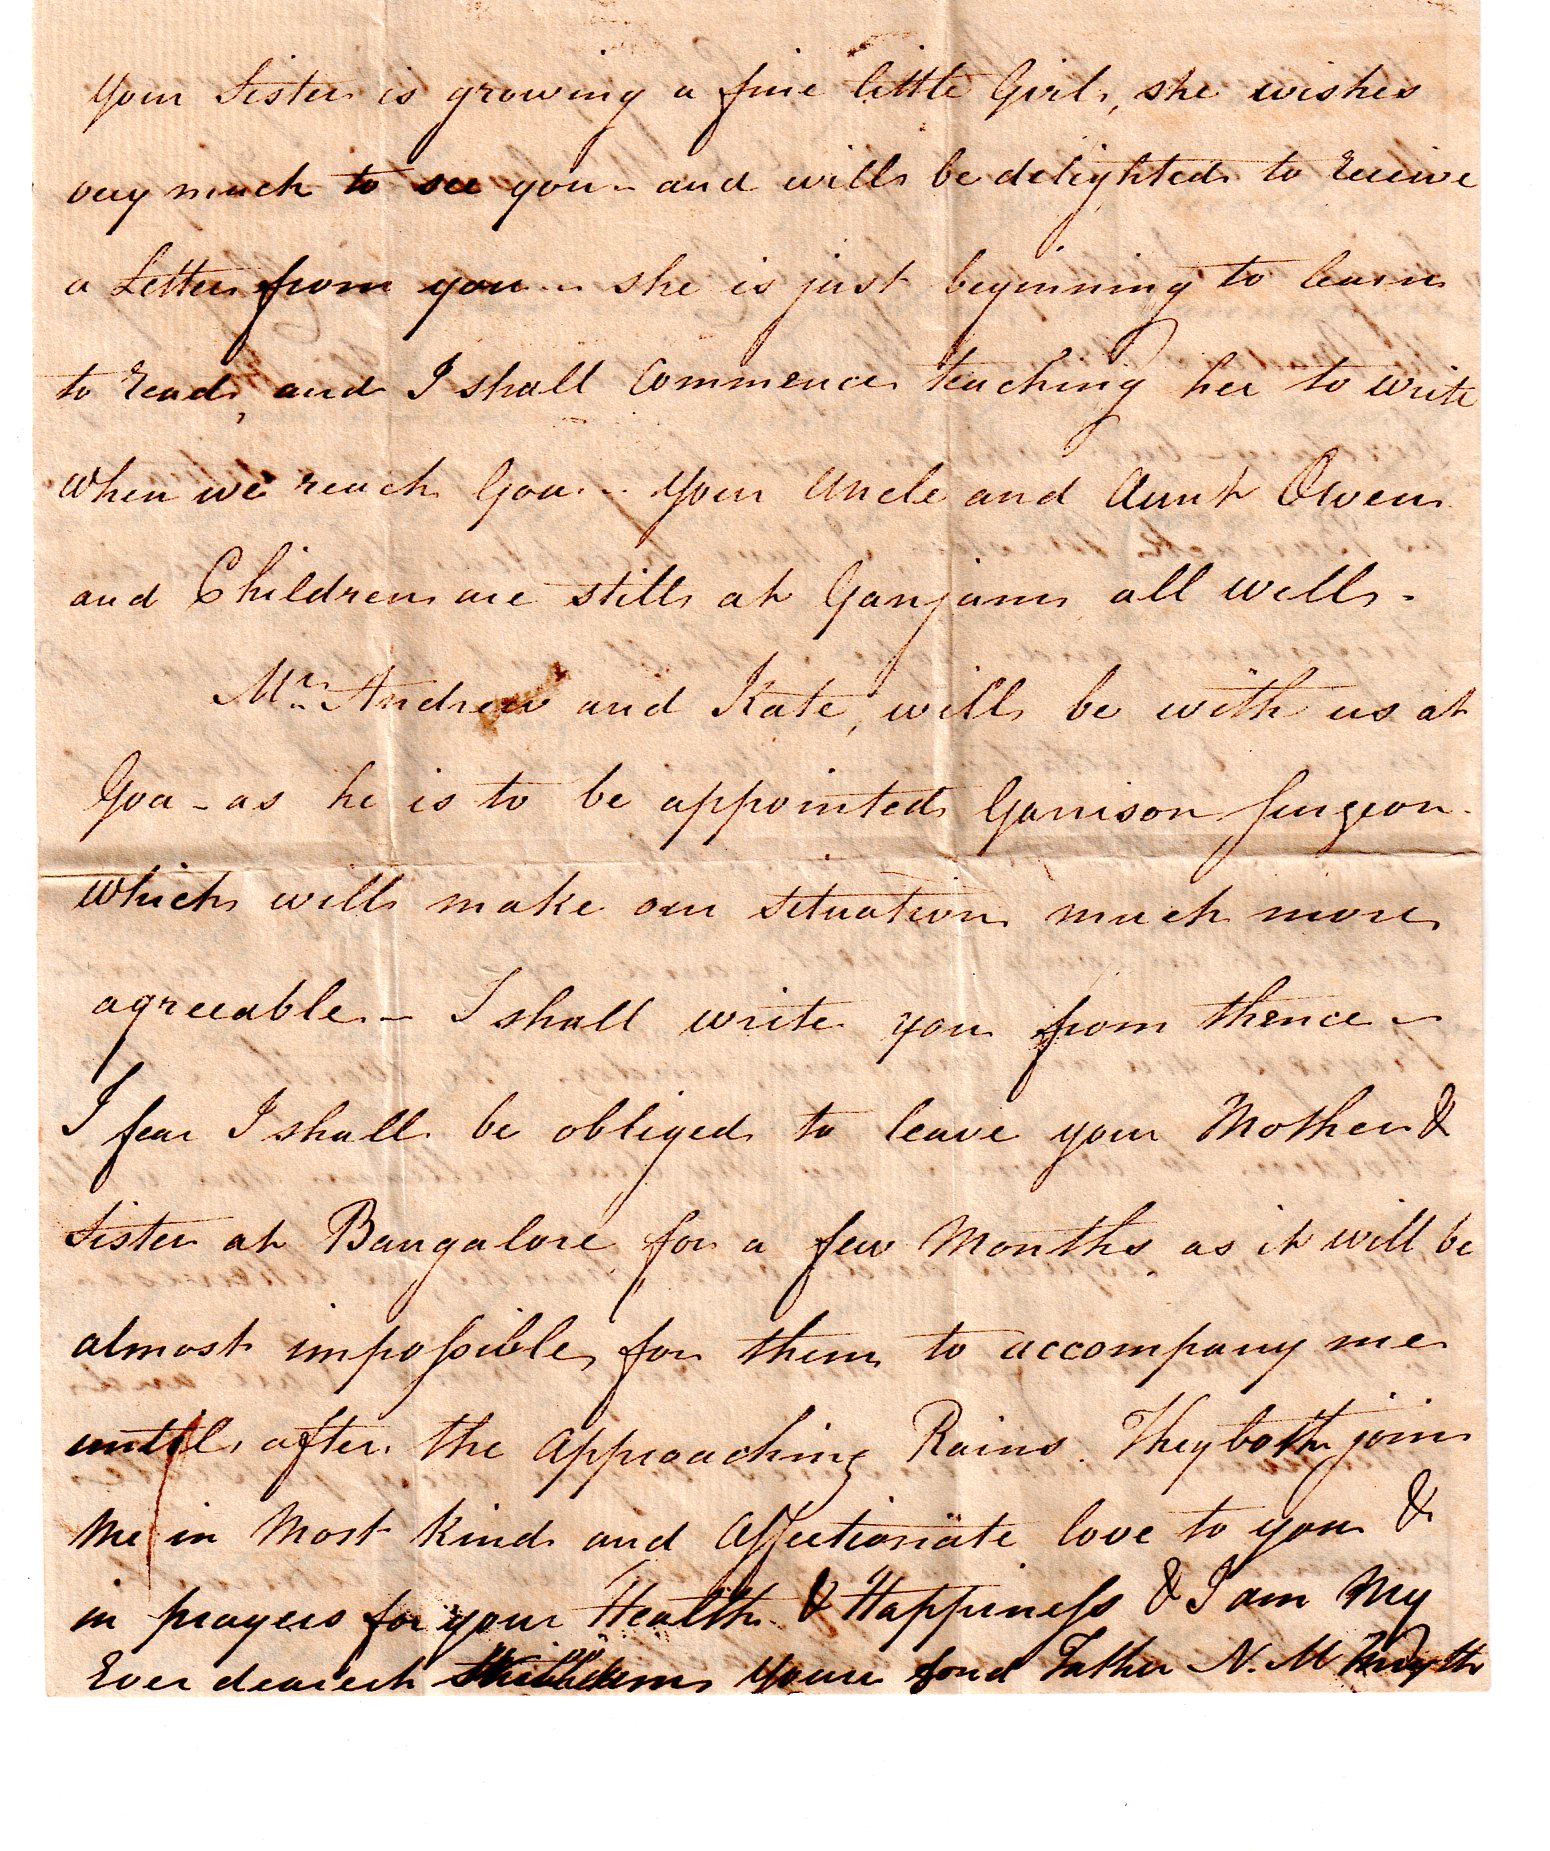 Your Sister is growing a fine little Girl, she wishes
very much to see you - and will be delighted to receive
a Letter from you - she is just beginning to learn
to read, and I shall Commence teaching her to write
When we reach Goa - Your Uncle and Aunt Owen
and Children are still at Ganjam all well -
Mr. Andrew and Kate, will be with us at
Goa - as he is to be appointed Garrison Surgeon -
which will make our situation much more
agreeable - I shall write you from thence -
I fear I shall be obliged to leave your Mother &
Sister at Bangalore for a few Months as it will be
almost impossible for them to accompany me
until after the Approaching Rains. They both join
Me in Most kind and Affectionate love to you &
in prayers for your Health & Happiness & I am My
Ever dearest your fond Father N. M